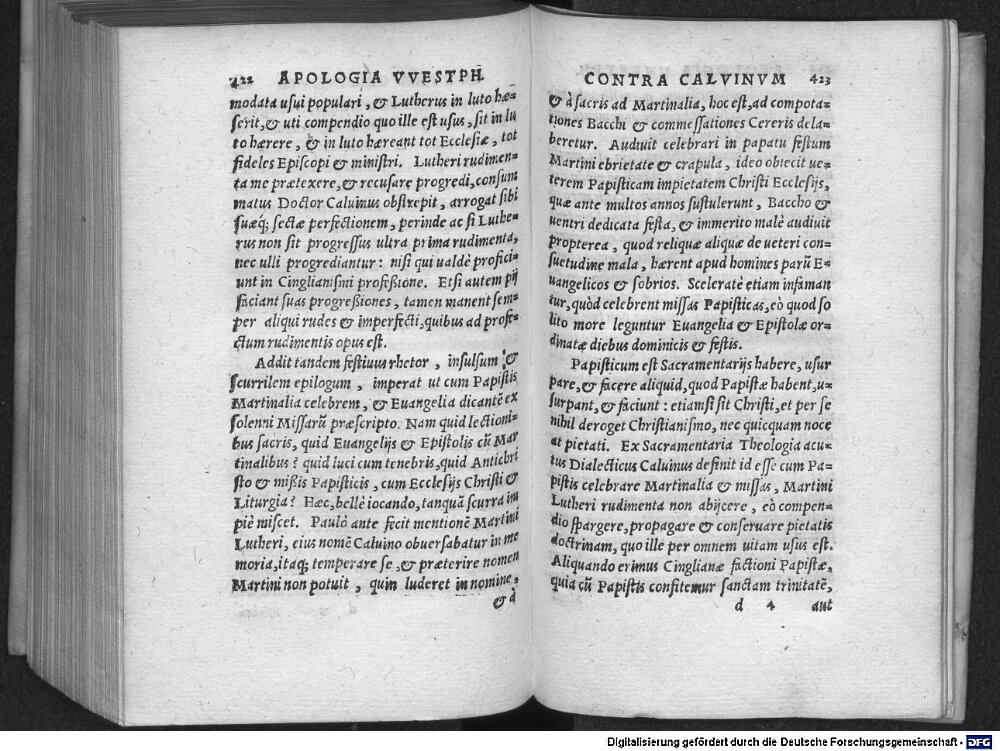 422 APOLOGIA VVESTPH.
modata usui populari, & Lutherus in luto hæ-
serit, & uti compendio quo ille est usus, sit in lu
to hærere, & in luto hæreant tot Ecclesiæ, tot
fideles Episcopi & ministri. Lutheri rudimen-
ta me prætexere, & recusare progredi, consum
matus Doctor Caluinus obstrepit, arrogat sibi
suæq; sectæ perfectionem, perinde ac si Luthe-
rus non sit progressus ultra prima rudimenta,
nec ulli progrediantur: nisi qui ualdè profici-
unt in Cinglianismi professione. Etsi autem pij
faciant suas progreßiones, tamen manent sem-
per aliqui rudes & imperfecti, quibus ad profe-
ctum rudimentis opus est.
Addit tandem festiuus rhetor, insulsum &
scurrilem epilogum, imperat ut cum Papistis
Martinalia celebrem, & Euangelia dicantē ex
solenni Missarū præscripto. Nam quid lectioni-
bus sacris, quid Euangelijs & Epistolis cū Mar
tinalibus? quid luci cum tenebris, quid Antichri
sto & mißis Papisticis, cum Ecclesijs Christi &
Liturgia? Hæc, bellè iocando, tanquā scurra im
piè miscet. Paulò ante fecit mentionē Martini
Lutheri, eius nomē Caluino obuersabatur in me
moria, itaq; temperare se, & præterire nomen
Martini non potuit, quin luderet in nomine,
& à
CONTRA CALVINVM 423
& à sacris ad Martinalia, hoc est, ad compota-
tiones Bacchi & commessationes Cereris dela-
beretur. Audiuit celebrari in papatu festum
Martini ebrietate & crapula, ideo obiecit ue-
terem Papisticam impietatem Christi Ecclesijs,
quæ ante multos annos sustulerunt, Baccho &
uentri dedicata festa, & immerito malè audiuit
propterea, quod reliquæ aliquæ de ueteri con-
suetudine mala, hærent apud homines parū E-
uangelicos & sobrios. Sceleratè etiam infaman
tur, quòd celebrent missas Papisticas, eò quod so
lito more leguntur Euangelia & Epistolæ or-
dinatæ diebus dominicis & festis.
Papisticum est Sacramentarijs habere, usur
pare, & facere aliquid, quod Papistæ habent, u-
surpant, & faciunt: etiamsi sit Christi, et per se
nihil deroget Christianismo, nec quicquam noce
at pietati. Ex Sacramentaria Theologia acu-
tus Dialecticus Caluinus definit id esse cum Pa-
pistis celebrare Martinalia & missas, Martini
Lutheri rudimenta non abijcere, eò compen-
dio spargere, propagare & conseruare pietatis
doctrinam, quo ille per omnem uitam usus est.
Aliquando erimus Cinglianæ factioni Papistæ,
quia cū Papistis confitemur sanctam trinitatē,
d 4 aut
Digitalisierung gefördert durch die Deutsche Forschungsgemeinschaft - DFG